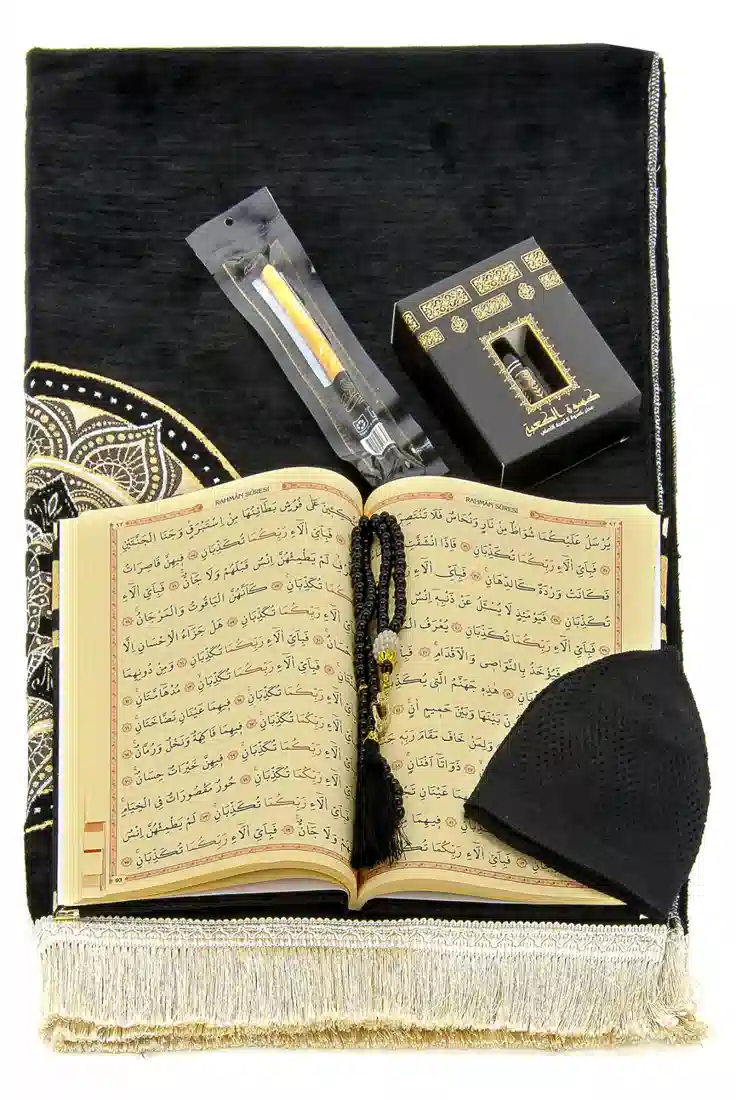 كسوة الكعبة
RAHMÂN SÛRESİ
يُرْسَلُ عَلَيْكُمَا شُوَاظٌ مِنْ نَارٍ وَنُحَاسٌ فَلَا
فَبِاَيِّ اٰلَٓاءِ رَبِّكُمَا تُكَذِّبَانِ فَاِذَا
فَكَانَتْ وَرْدَةً كَالدِّهَانِ فَبِاَيِّ اٰلَٓاءِ
تُكَذِّبَانِ فَيَوْمَئِذٍ لَا يُسْـَٔلُ عَنْ ذَنْبِهٖٓ اِنْسٌ
فَبِاَيِّ اٰلَٓاءِ رَبِّكُمَا تُكَذِّبَانِ يُعْرَفُ
فَيُؤْخَذُ بِالنَّوَاصٖي وَالْاَقْدَامِ
هٰذِهٖ جَهَنَّمُ الَّتٖي
بَيْنَهَا وَبَيْنَ حَمٖيمٍ
وَلِمَنْ خَافَ مَقَامَ رَبِّهٖ
ذَوَاتَٓا اَفْنَانٍ
عَيْنَانِ
فٖيهِمَا
فَبِاَيِّ اٰلَٓاءِ رَبِّكُمَا
RAHMÂN SÛRESİ
عَلٰى فُرُشٍ بَطَٓائِنُهَا مِنْ اِسْتَبْرَقٍ وَجَنَا الْجَنَّتَيْنِ
فَبِاَيِّ اٰلَٓاءِ رَبِّكُمَا تُكَذِّبَانِ فٖيهِنَّ قَاصِرَاتُ
لَمْ يَطْمِثْهُنَّ اِنْسٌ قَبْلَهُمْ وَلَا جَٓانٌّ فَبِاَيِّ اٰلَٓاءِ
تُكَذِّبَانِ كَاَنَّهُنَّ الْيَاقُوتُ وَالْمَرْجَانُ
فَبِاَيِّ اٰلَٓاءِ رَبِّكُمَا تُكَذِّبَانِ هَلْ جَزَٓاءُ الْاِحْسَانِ اِلَّا
فَبِاَيِّ اٰلَٓاءِ رَبِّكُمَا تُكَذِّبَانِ وَمِنْ دُونِهِمَا
فَبِاَيِّ اٰلَٓاءِ رَبِّكُمَا تُكَذِّبَانِ مُدْهَٓامَّتَانِ
اٰلَٓاءِ رَبِّكُمَا تُكَذِّبَانِ فٖيهِمَا عَيْنَانِ نَضَّاخَتَانِ
اٰلَٓاءِ رَبِّكُمَا تُكَذِّبَانِ فٖيهِمَا فَاكِهَةٌ وَنَخْلٌ وَرُمَّانٌ
اٰلَٓاءِ رَبِّكُمَا تُكَذِّبَانِ فٖيهِنَّ خَيْرَاتٌ حِسَانٌ
اٰلَٓاءِ رَبِّكُمَا تُكَذِّبَانِ حُورٌ مَقْصُورَاتٌ فِي الْخِيَامِ
اٰلَٓاءِ رَبِّكُمَا تُكَذِّبَانِ لَمْ يَطْمِثْهُنَّ اِنْسٌ
وَلَا جَٓانٌّ فَبِاَيِّ اٰلَٓاءِ رَبِّكُمَا تُكَذِّبَانِ